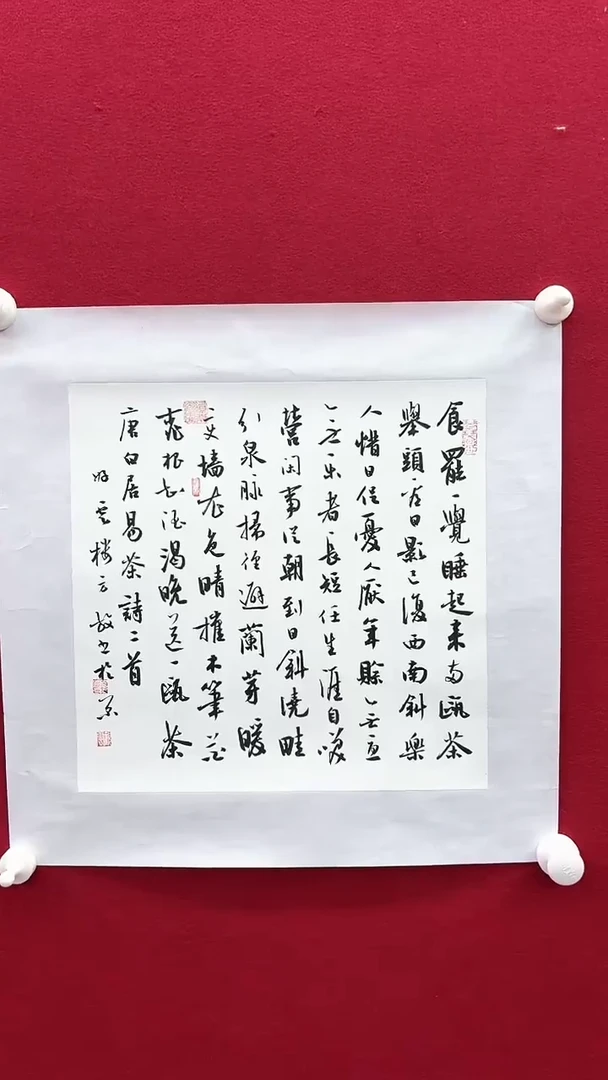 食罷一覺睡起来兩甌茶
舉頭看日影已復西南斜樂
人惜日促憂人厭年賒無憂
無樂者長短任生涯自哂
營閑事從朝到日斜澆畦
引泉脉掃徑避蘭芽暖
變墻衣色晴催木筆花
桃根知酒渴晚送一甌茶
唐白居易茶詩二首
雲樓方書於京